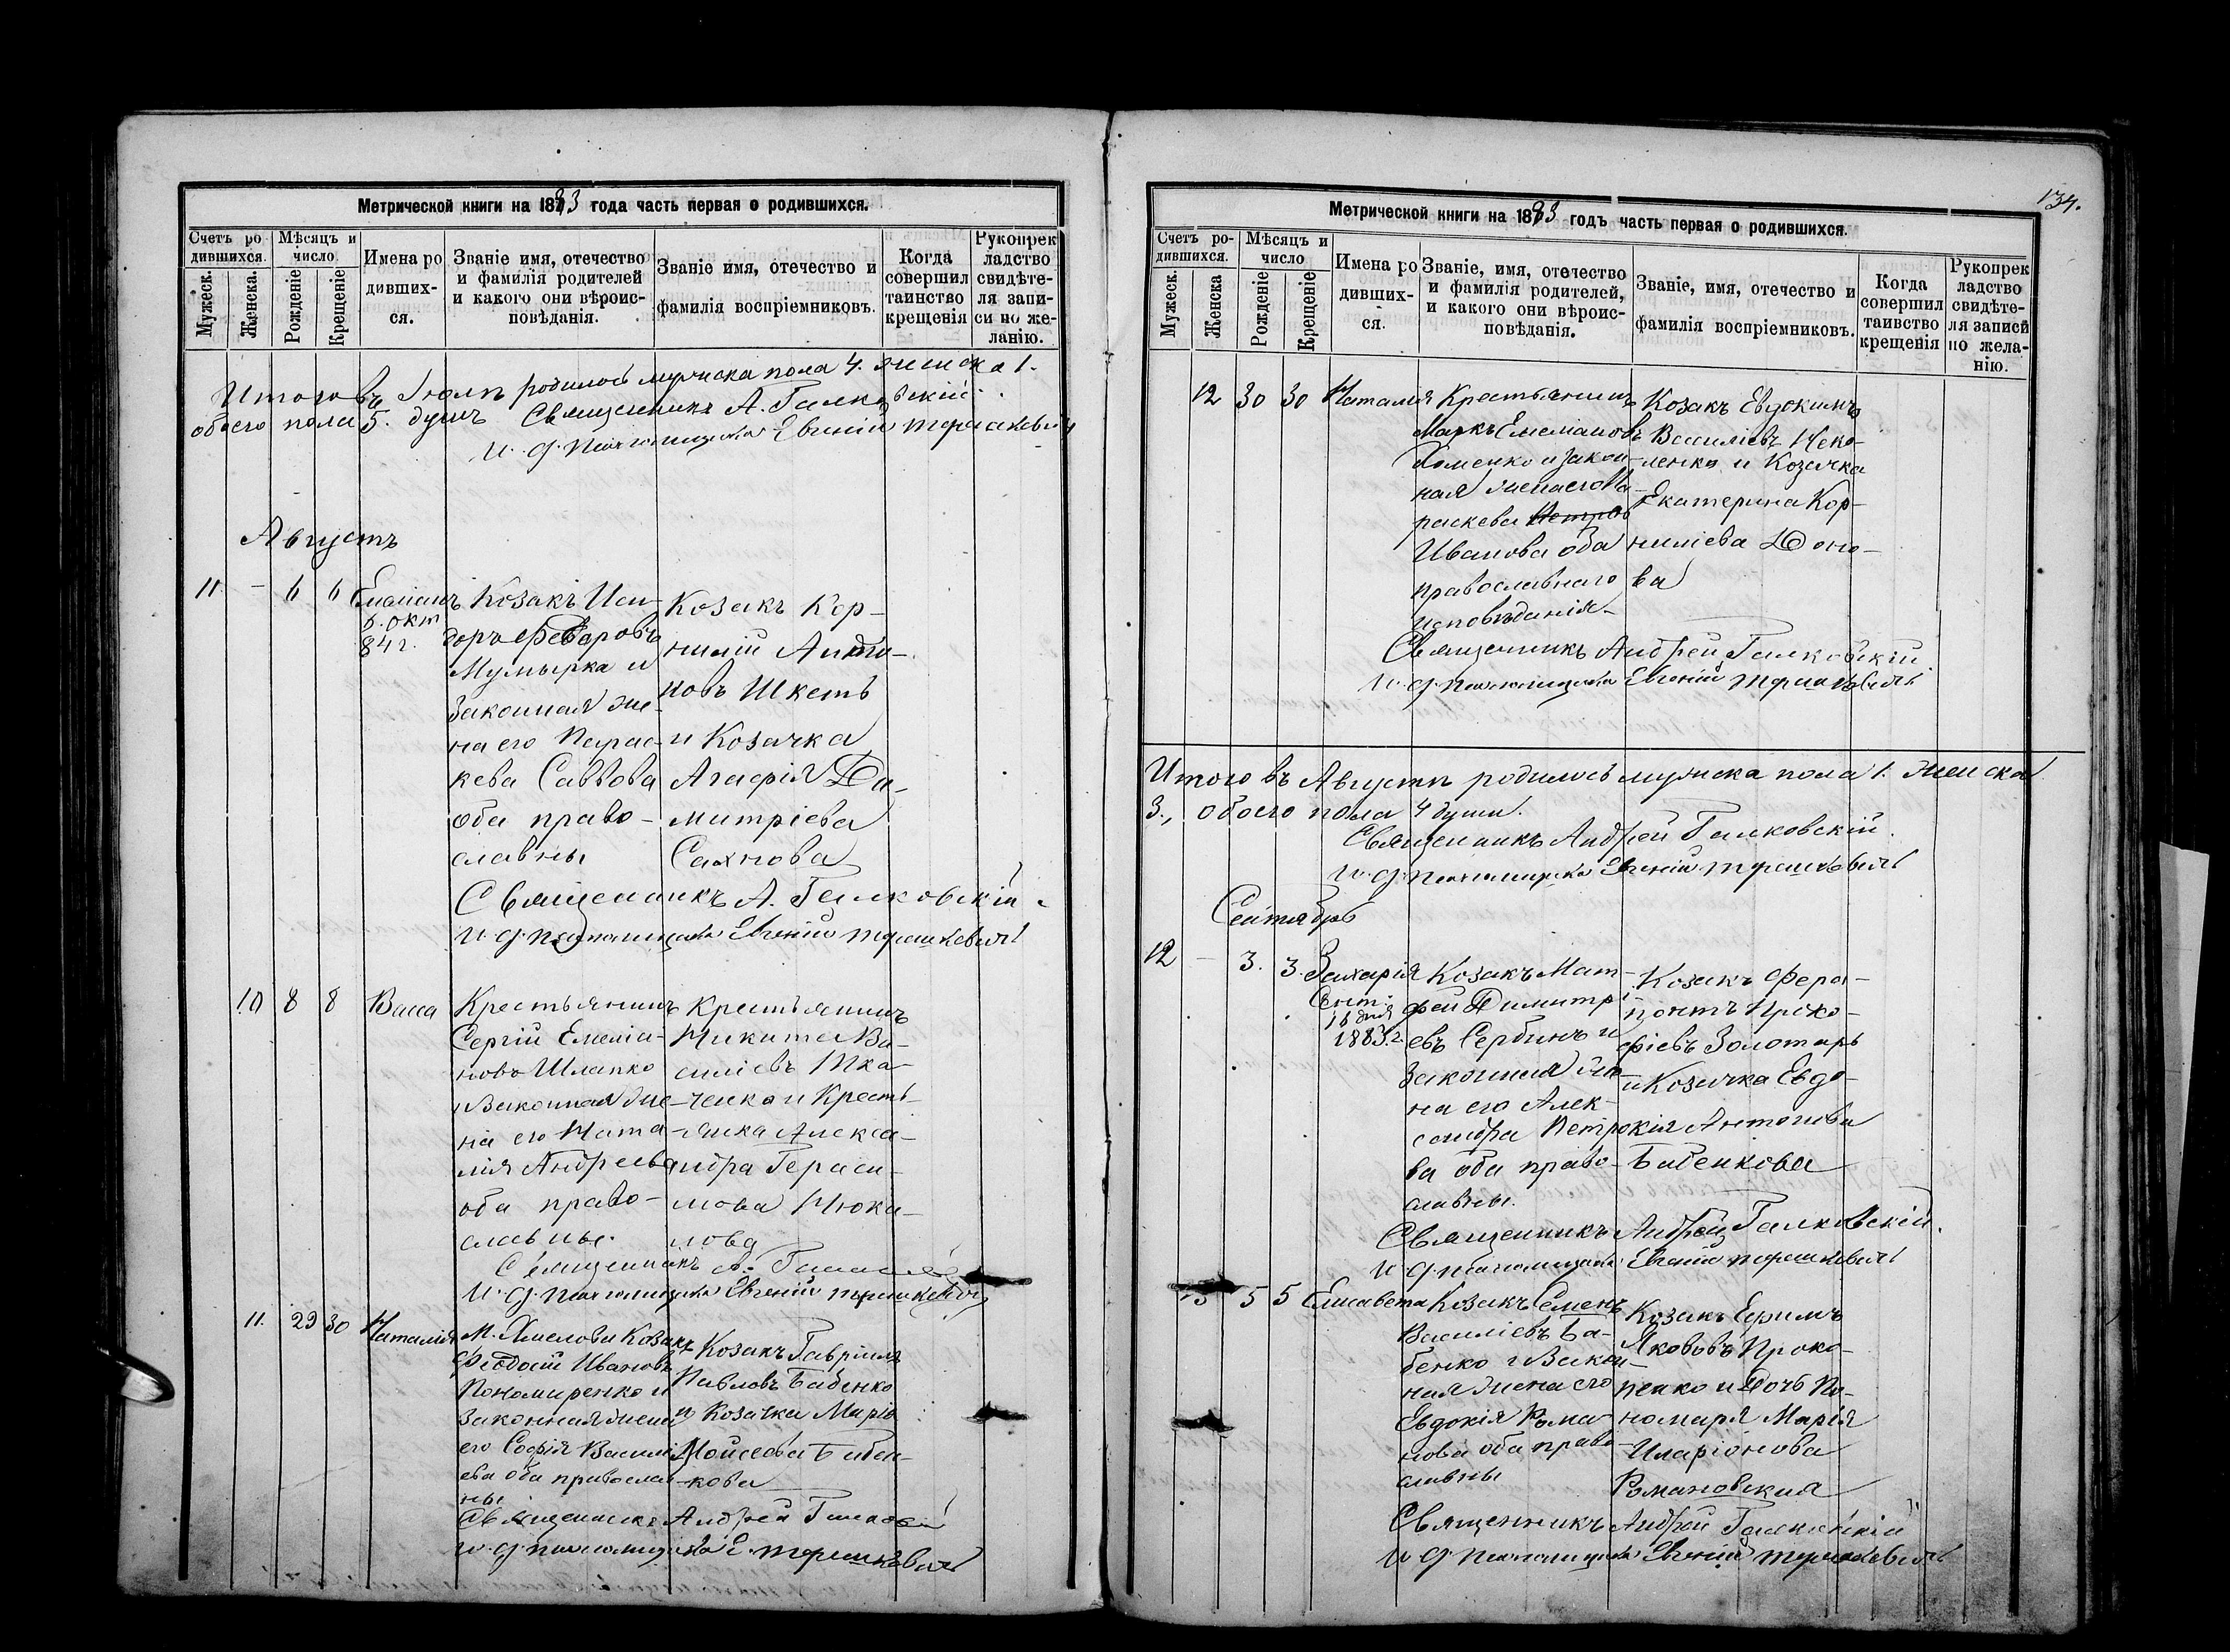 Метрической книги на 1883 года часть первая о родившихся.
Счетъ ро
дившихся.
Мѣсяцъ и
число
Мужеск.
Женска.
Рожденіе
Крещеніе
Имена ро
дивших-
ся.
Званіе имя, отечество
и фамилія родителей
и какого они вѣроис-
повѣданія.
Званіе имя, отечество и
фамилія воспріемниковъ.
Когда
совершил
таинство
крещенія
Рукопрек
ладство
свидѣте-
ля запи-
си по же-
ланію.
Итого въ Іюлѣ родилось мужска пола 4. женска 1.
обоего пола 5. душъ Священникъ А. Галковскій
и. д. псаломщика Евгеній
Августъ
11 - 6 6 Емеліанъ
6. окт
84 г.
Козакъ Иси-
доръ Федоровъ
Мумырка и
Законная же-
на его Парас-
кева Саввова
оба право-
славны
Козакъ Кор-
нилій Анто-
новъ Шкеть
и Козачка
Агафія Ди-
митріева
Сахнова
Священникъ А. Галковскій
и. д. псаломщика Евгеній
10 8 8 Васса
Крестьянинъ
Сергій Емеліа-
новъ Шлапко
и Законная же-
на его Ната-
лія Андреева
оба право-
славны.
Крестьянинъ
Никита Ва-
силіевъ Тка-
ченко и Кресть-
янка Алекса-
ндра Гераси-
мова
нова
Священникъ А.
и. д. псаломщика Евгеній
11. 29 30 Наталія
М. Хмелова Козакъ
Феодосій Ивановъ
Пономаренко и
Законная жена
его Софія Василі-
ева оба православ-
ны
Козакъ Гавріилъ
Павловъ Бабенко
и Козачка Марія
Мойсеева Бабен-
кова
Священникъ Андрей
и. д. псаломщика Е.
134.
Метрической книги на 1883 годъ часть первая о родившихся.
Счетъ ро-
дившихся.
Мѣсяцъ и
число
Мужеск.
Женска
Рожденіе
Крещеніе
Имена ро
дивших-
ся.
Званіе, имя, отечество
и фамилія родителей,
и какого они вѣроис-
повѣданія.
Званіе, имя, отечество и
фамилія воспріемниковъ.
Когда
совершил
таивство
крещенія
Рукопрек
ладство
свидѣте-
ля записи
по жела-
нію.
12 30 30 Наталія
Крестьянинъ
Маркъ Емеліановъ
Хоменко и закон-
ная жена его Па-
раскева Петров
Иванова оба
православнаго
исповѣданія
Козакъ Евдокимъ
Василіевъ
и Козачка
Екатерина Кор-
ниліева
ва
Священникъ Андрей Галковскій
и. д. псаломщика Евгеній
Итого въ Августѣ родилось мужска пола 1. женска
3., обоего пола 4 души.
Священникъ Андрей Галковскій
и. д. псаломщика Евгеній
Сентябрь
12 - 3. 3. Захарія
Сент.
16 дня
1883 г.
Козакъ Мат-
фей Димитрі-
евъ Сербинъ и
Законная же-
на его Алек-
сандра Петро-
ва оба право-
славны.
Козакъ Фера-
понтъ Проко-
фіевъ Золотарь
и Козачка Евдо-
кія Антонова
Бабенкова
Священникъ Андрей Галковскій.
и. д. псаломщика Евгеній
13 5 5 Елисавета
Козакъ Семенъ
Василіевъ Ба-
бенко и Закон-
ная жена его
Евдокія Рома-
нова оба право-
славны
Козакъ Ефимъ
Якововъ Проко-
пенко и Дочь По-
номаря Марія
Иларіонова
Романовская
Священникъ Андрей Галковскій
и. д. псаломщика Евгеній